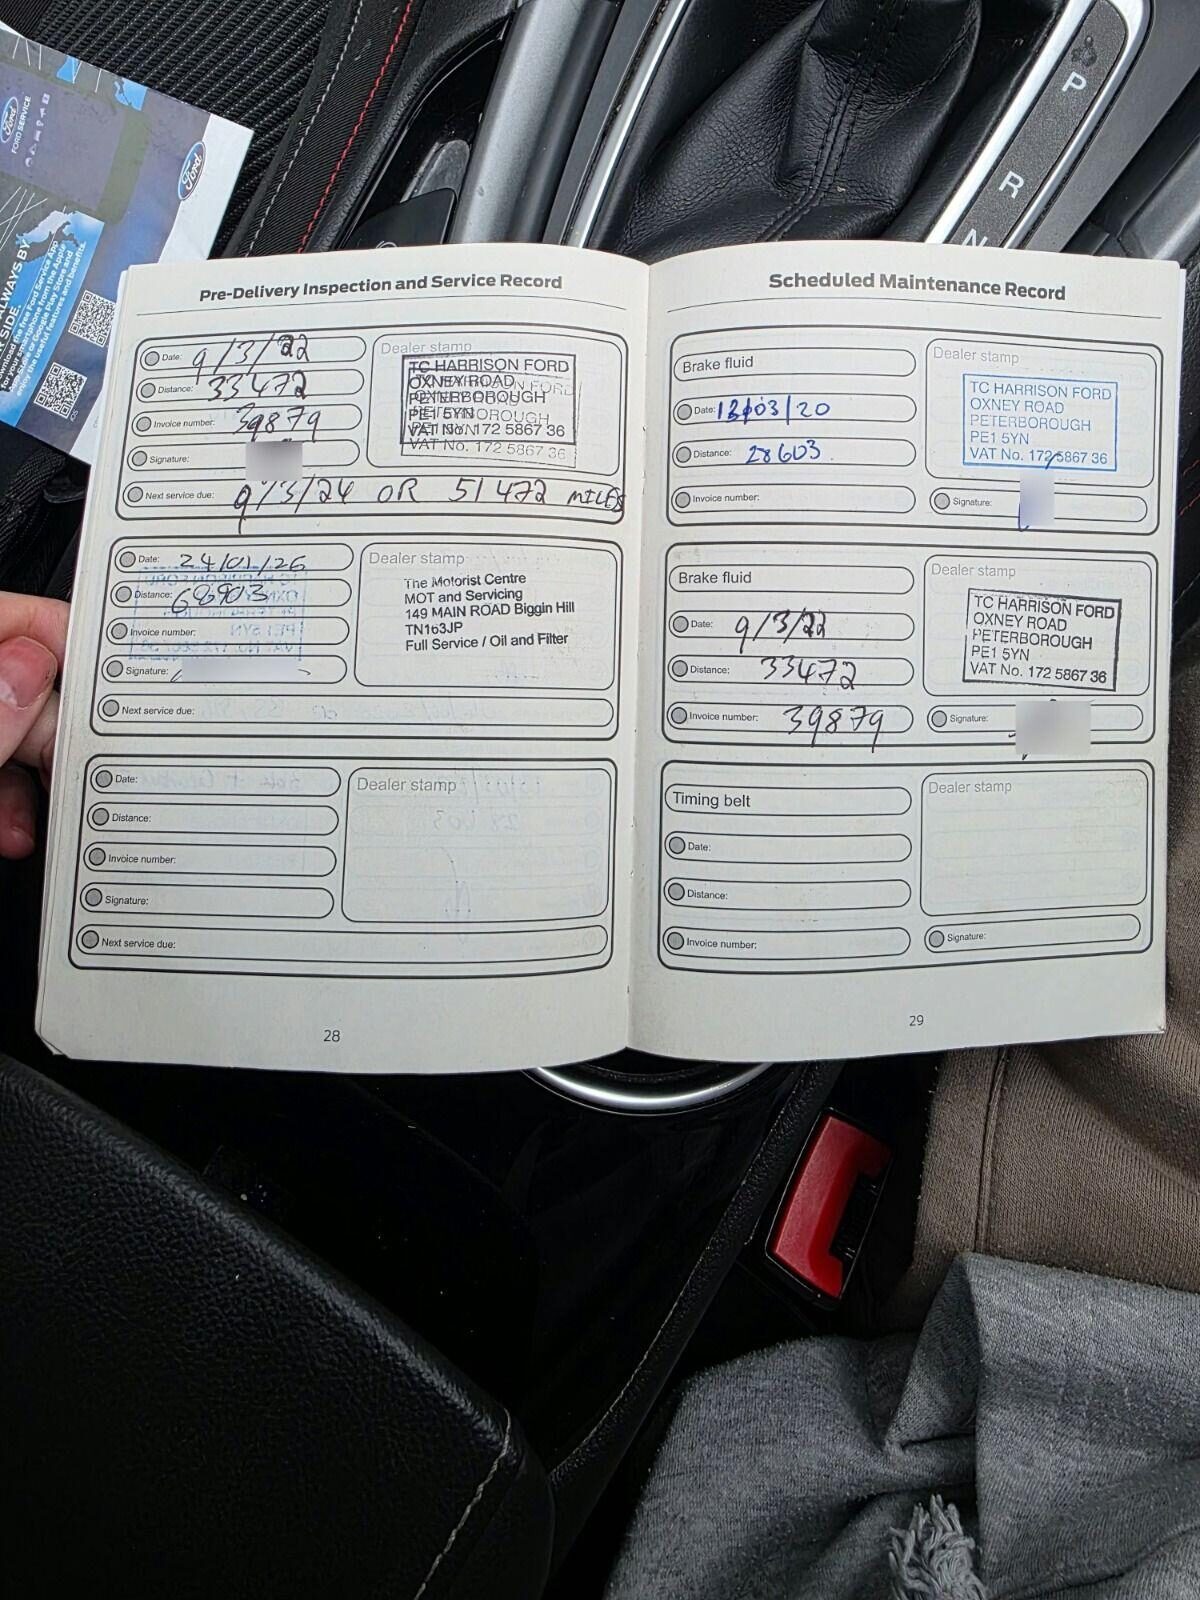 Ford
FORD SERVICE
Ford
ALWAYS BY
R SIDE.
Download the free Ford Service App
for your smartphone from the Apple
App Store or Google Play Store and
enjoy the useful features and benefits.
iOS
Pre-Delivery Inspection and Service Record
Date: 9/3/22
Distance: 33472
Invoice number: 39879
Signature:
Next service due: 9/3/24 OR 51472 MILES
Dealer stamp
TC HARRISON FORD
OXNEY ROAD
PETERBOROUGH
PE1 5YN
VAT No. 172 5867 36
VAT No. 172 5867 36
Date: 24/01/26
Distance: 68903
Invoice number:
Signature:
Next service due:
Dealer stamp
The Motorist Centre
MOT and Servicing
149 MAIN ROAD Biggin Hill
TN163JP
Full Service / Oil and Filter
Date:
Distance:
Invoice number:
Signature:
Next service due:
Dealer stamp
28
Scheduled Maintenance Record
Brake fluid
Date: 13/03/20
Distance: 28603
Invoice number:
Dealer stamp
TC HARRISON FORD
OXNEY ROAD
PETERBOROUGH
PE1 5YN
VAT No. 172 5867 36
Signature:
Brake fluid
Date: 9/3/22
Distance: 33472
Invoice number: 39879
Dealer stamp
TC HARRISON FORD
OXNEY ROAD
PETERBOROUGH
PE1 5YN
VAT No. 172 5867 36
Signature:
Timing belt
Date:
Distance:
Invoice number:
Dealer stamp
Signature:
29
P
R
N